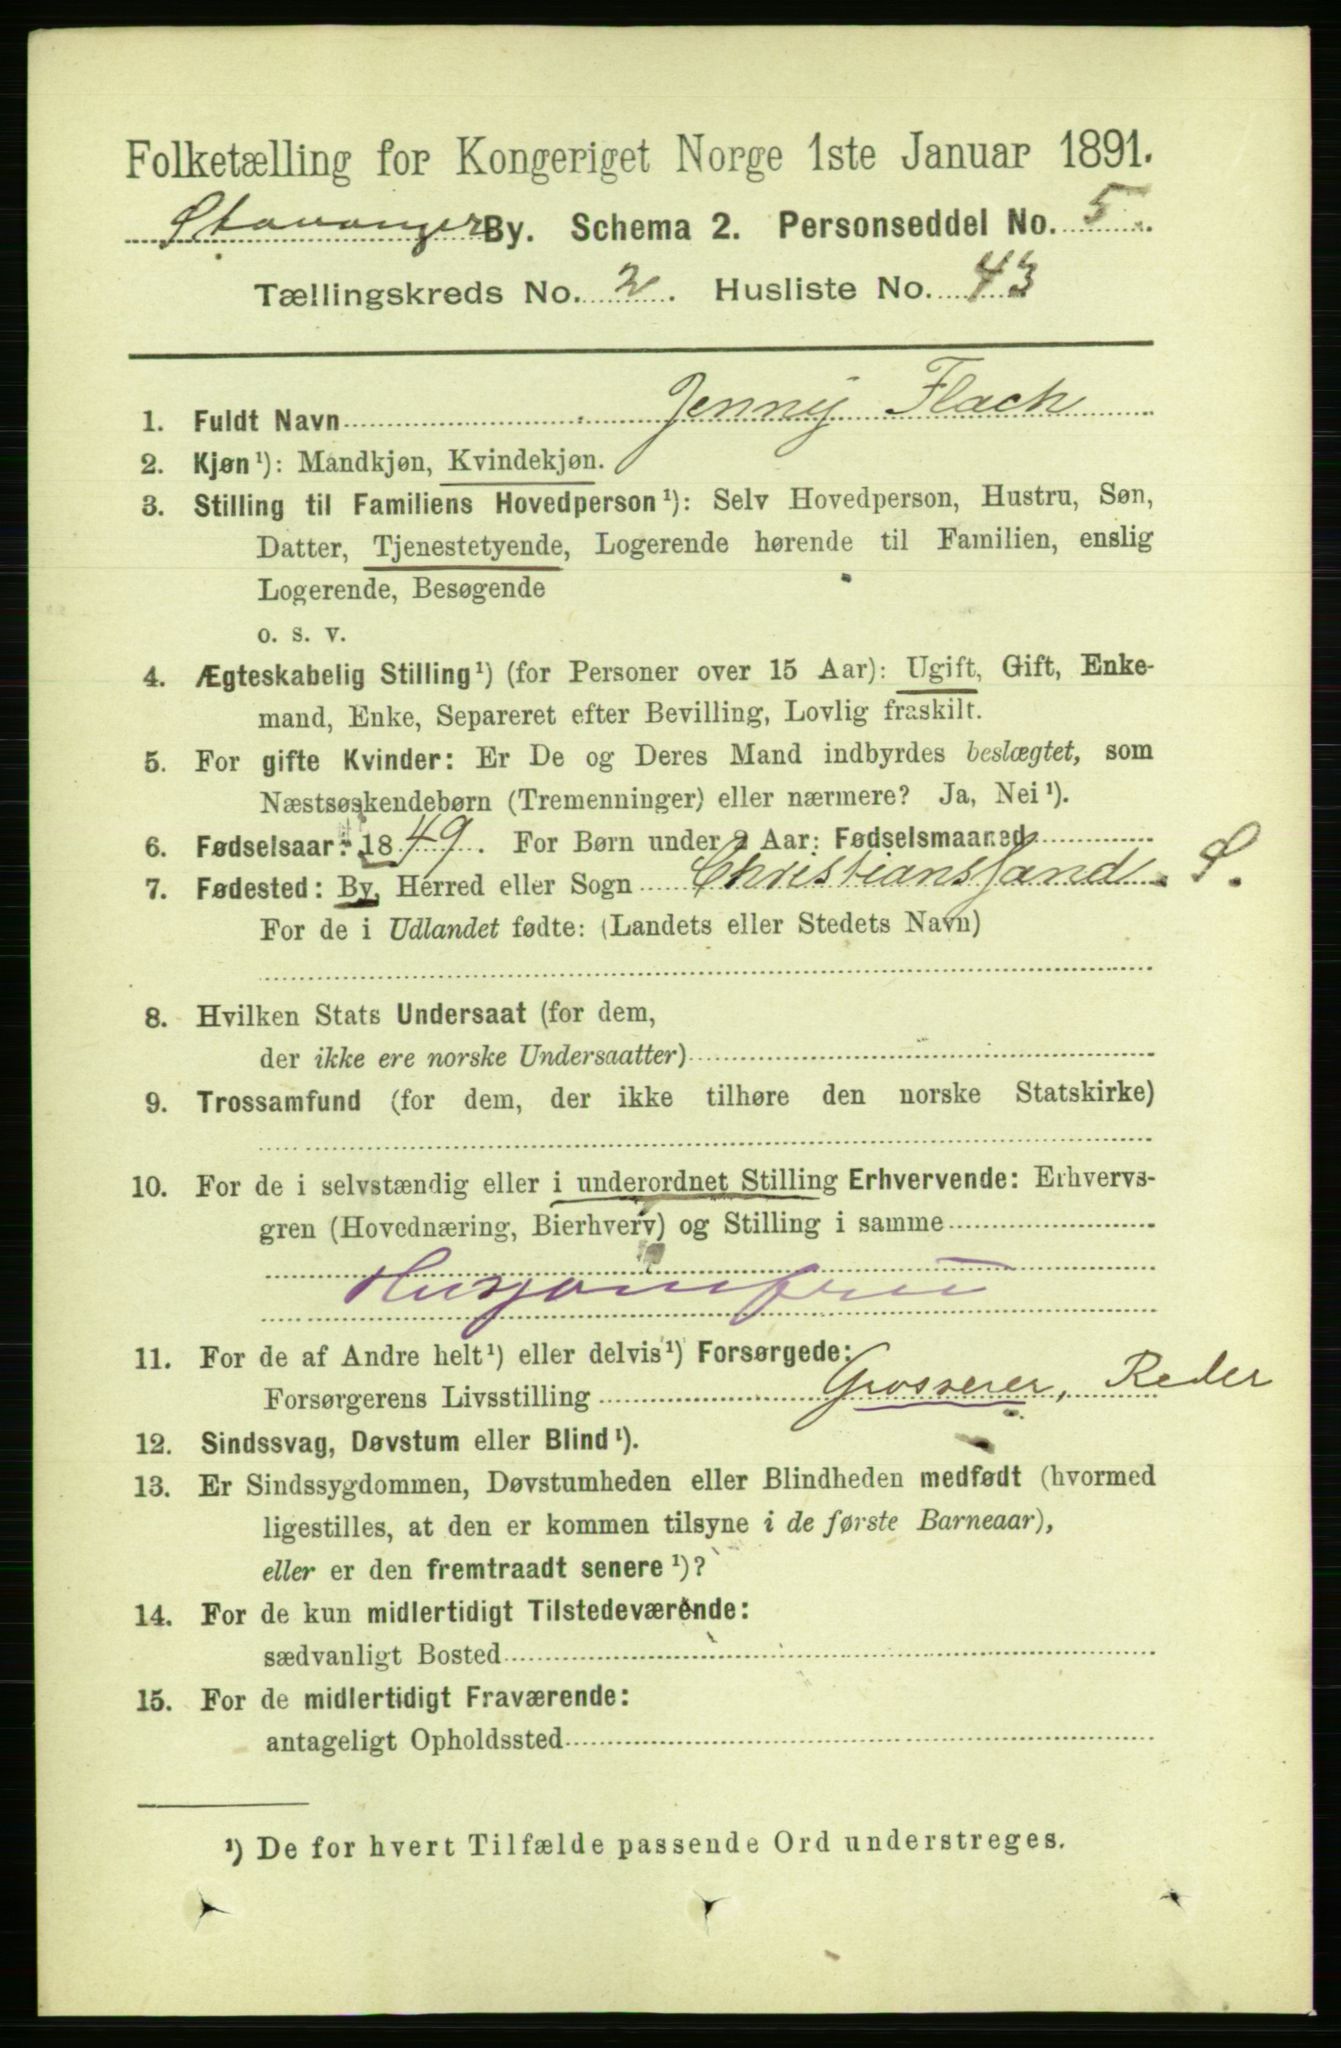 Folketælling for Kongeriget Norge 1ste Januar 1891.
Stavanger By. Schema 2. Personseddel No. 5.
Tællingskreds No. 2. Husliste No. 43
1. Fuldt Navn Jenny Flach
2. Kjøn¹): Mandkjøn, Kvindekjøn.
3. Stilling til Familiens Hovedperson¹): Selv Hovedperson, Hustru, Søn,
Datter, Tjenestetyende, Logerende hørende til Familien, enslig
Logerende, Besøgende
o. s. v.
4. Ægteskabelig Stilling¹) (for Personer over 15 Aar): Ugift, Gift, Enke-
mand, Enke, Separeret efter Bevilling, Lovlig fraskilt.
5. For gifte Kvinder: Er De og Deres Mand indbyrdes beslægtet, som
Næstsøskendebørn (Tremenninger) eller nærmere? Ja, Nei¹).
6. Fødselsaar: 1849. For Børn under 2 Aar: Fødselsmaaned
7. Fødested: By, Herred eller Sogn Christianssand. S.
For de i Udlandet fødte: (Landets eller Stedets Navn)
8. Hvilken Stats Undersaat (for dem,
der ikke ere norske Undersaatter)
9. Trossamfund (for dem, der ikke tilhøre den norske Statskirke)
10. For de i selvstændig eller i underordnet Stilling Erhvervende: Erhvervs-
gren (Hovednæring, Bierhverv) og Stilling i samme
Husjomfru
11. For de af Andre helt¹) eller delvis¹) Forsørgede:
Forsørgerens Livsstilling Grosserer, Reder
12. Sindssvag, Døvstum eller Blind¹).
13. Er Sindssygdommen, Døvstumheden eller Blindheden medfødt (hvormed
ligestilles, at den er kommen tilsyne i de første Barneaar),
eller er den fremtraadt senere¹)?
14. For de kun midlertidigt Tilstedeværende:
sædvanligt Bosted
15. For de midlertidigt Fraværende:
antageligt Opholdssted
¹) De for hvert Tilfælde passende Ord understreges.